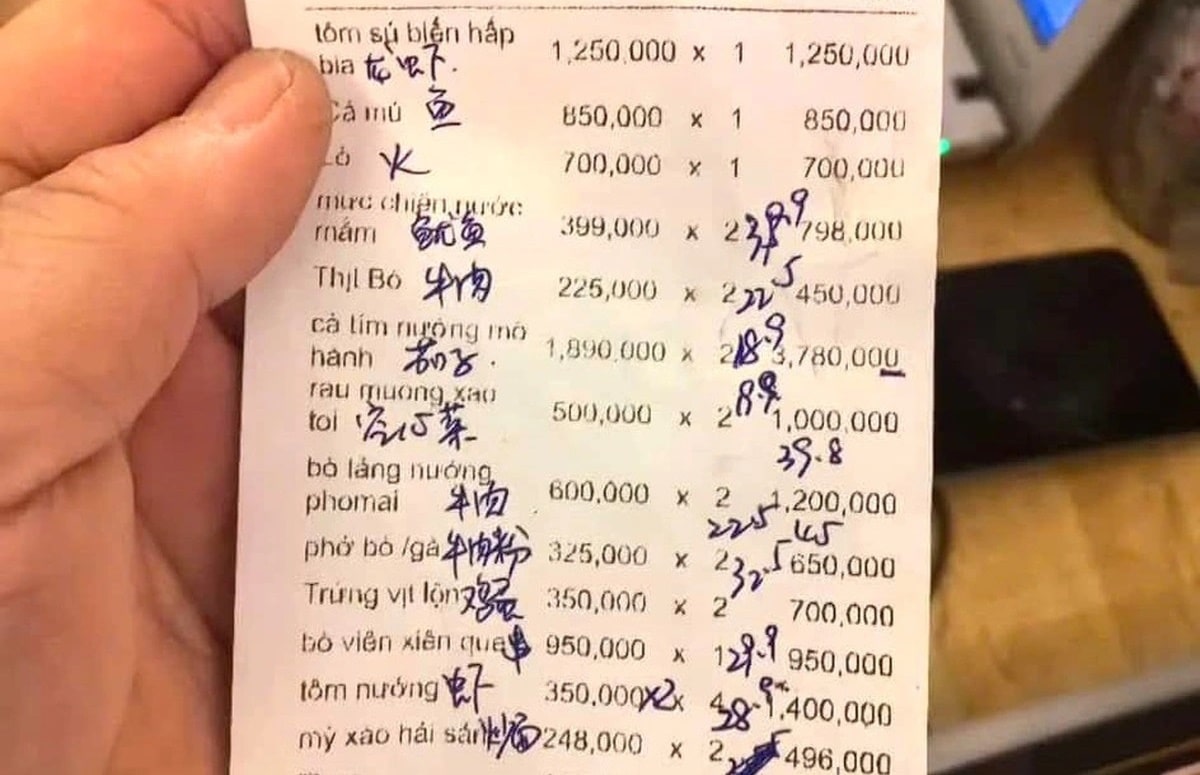 tôm sú biển hấp 1,250,000 x 1 1,250,000
bia 虾.
Cá mú 鱼 850,000 x 1 850,000
Lò 火 700,000 x 1 700,000
mực chiên nước
mắm 鱿鱼 399,000 x 2 798,000
Thịt Bò 牛肉 225,000 x 2 22.5 450,000
cà tím nướng mỡ
hành 茄子. 1,890,000 x 2 18.9 3,780,000
rau muống xào
tỏi 空心菜 500,000 x 2 8.9 1,000,000
39.8
bò lảng nướng
phomai 牛肉 600,000 x 2 1,200,000
22.5 45
phở bò /gà 牛肉粉 325,000 x 2 32.5 650,000
Trứng vịt lộn 鸡蛋 350,000 x 2 700,000
bò viên xiên que 串 950,000 x 1 29.9 950,000
tôm nướng 虾 350,000 x2 x 4 38.9 1,400,000
mỳ xào hải sản 炒面 248,000 x 2 496,000